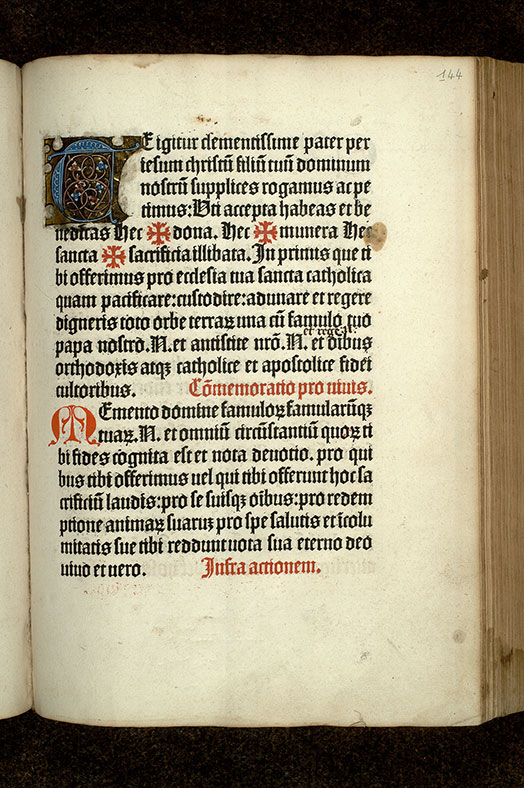 144
TE igitur clementissime pater per
iesum christū filiū tuū dominum
nostrū supplices rogamus ac pe
timus: Vti accepta habeas et be
nedicas Hec ✠ dona. Hec ✠ munera Hec
sancta ✠ sacrificia illibata. In primus que ti
bi offerimus pro ecclesia tua sancta catholica
quam pacificare: custodire: adunare et regere
digneris toto orbe terraꝝ una cū famulo tuo
et rege .N.
papa nostro .N. et antistite nr̄o .N. et oībus
orthodoxis atqꝫ catholice et apostolice fidei
cultoribus. Cōmemoratio pro viuis.
MEmento domine famuloꝝ famularūqꝫ
tuaꝝ .N. et omniū circūstantiū quoꝝ ti
bi fides cognita est et nota deuotio. pro qui
bus tibi offerimus uel qui tibi offerunt hoc sa
crificiū laudis: pro se suisqꝫ oībus: pro redem
ptione animaꝝ suaruꝫ pro spe salutis et īcolu
mitatis sue tibi reddunt uota sua eterno deo
uiuo et uero. Infra actionem.